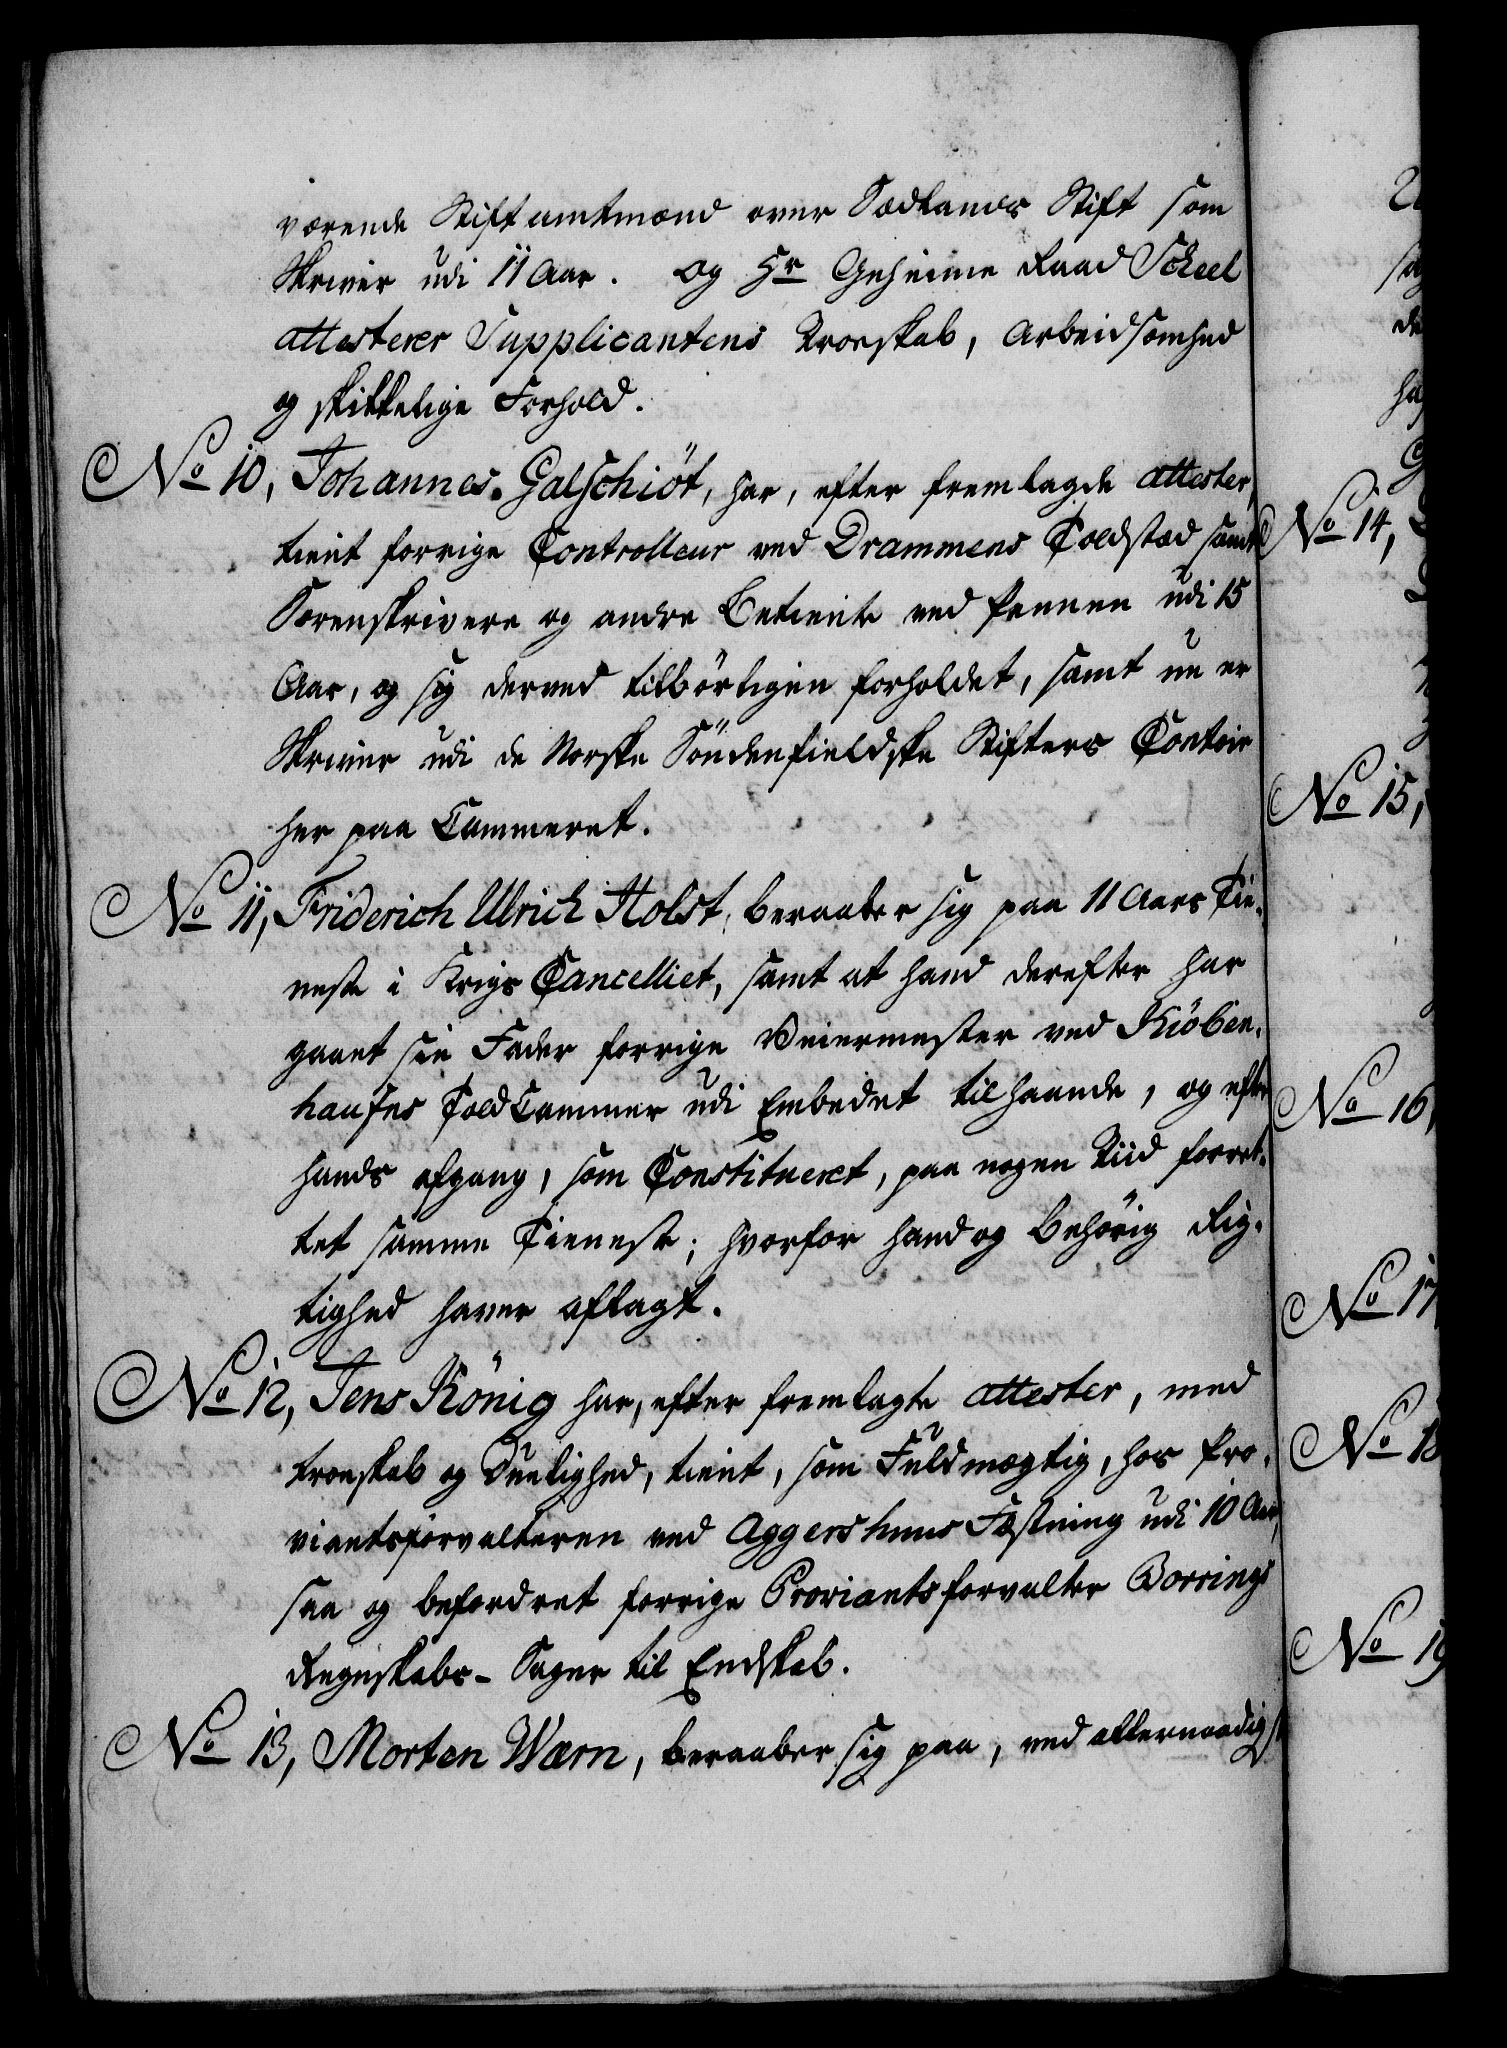 værende Stiftamtmænd over Siællands Stift som
Skriver udi 11 Aar. Og Hr Geheime Raad Scheel
attesterer Supplicantens Troeskab, Arbeidsomhed
og skikkelige Forhold.
No 10, Johannes Galschiöt, har, efter fremlagde attester,
tient forrige Controlleur ved Drammens Toldstæd samt
Sorenskrivere og andre Betiente ved Pennen udi 15
Aar, og sig derved tilbörligen forholdet, samt nu er
Skriver udi de Norske Söndenfieldske Stifters Contoir
her paa Cammeret.
No 11, Friderich Ulrich Holst, beraaber sig paa 11 Aars Tie-
neste i Krigs Cancelliet, samt at hand derefter har
gaaet sin Fader forrige Veiermester ved Kiöben-
hafns Told Cammer udi Embedet tilhaande, og efter
hands afgang, som Constitueret, paa nogen Tiid forret-
tet samme Tieneste; hvorfor hand og behörig Rig-
tighed haver aflagt.
No 12, Jens König har, efter fremlagte attester, med
troeskab og Duelighed, tient, som Fuldmægtig, hos Pro-
viantsforvalteren ved Aggershuus Fæstning udi 10 Aar,
saa og befordret forrige Proviantsforvalter Borrings
Regnskabs- Sager til Endskab.
No 13, Morten Wærn, beraaber sig paa, ved allernaadigst
No 14,
No 15,
No 16,
No 17
No 18
No 19